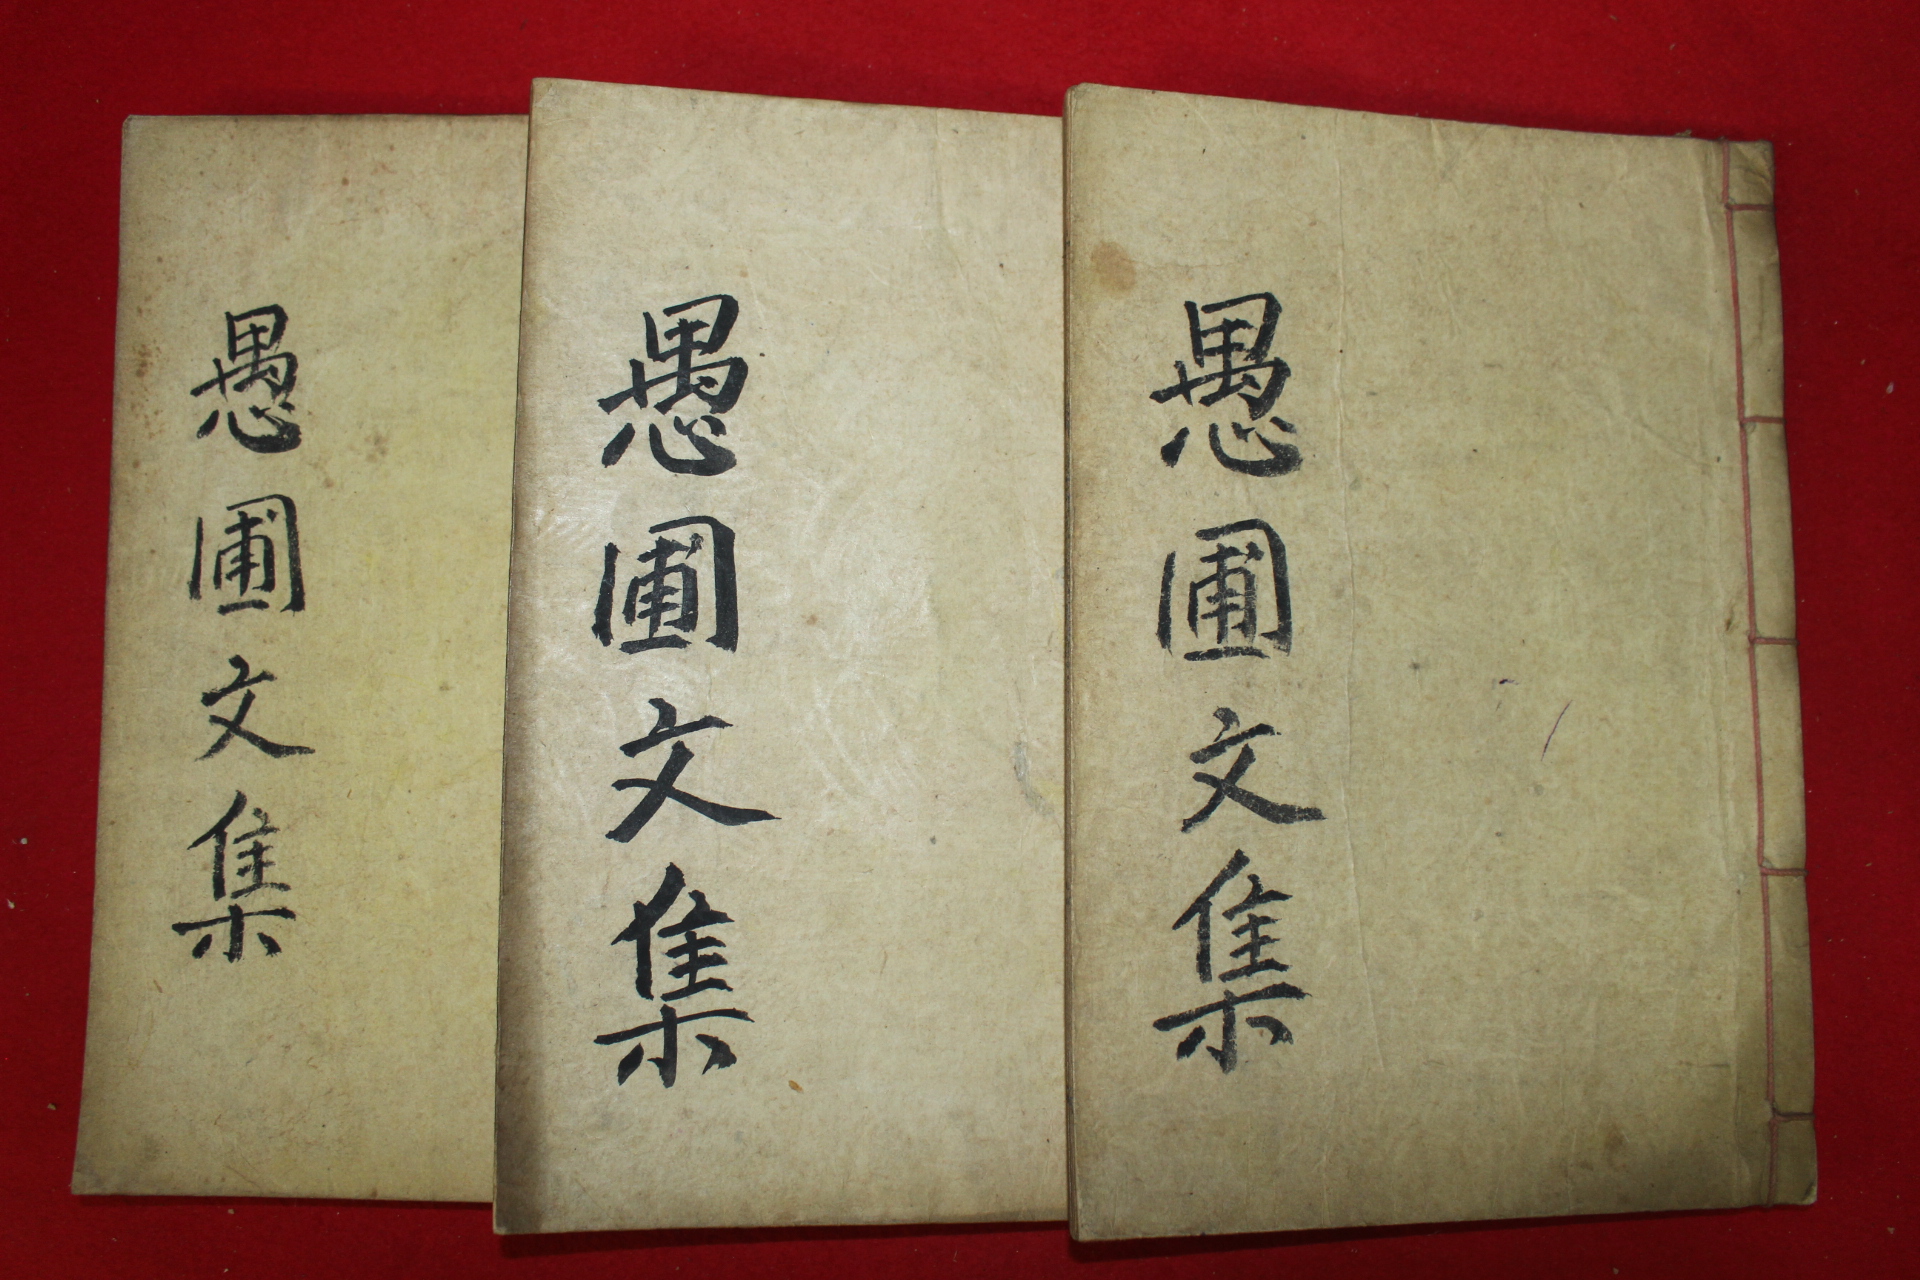 愚圃文集
愚圃文集
愚圃文集